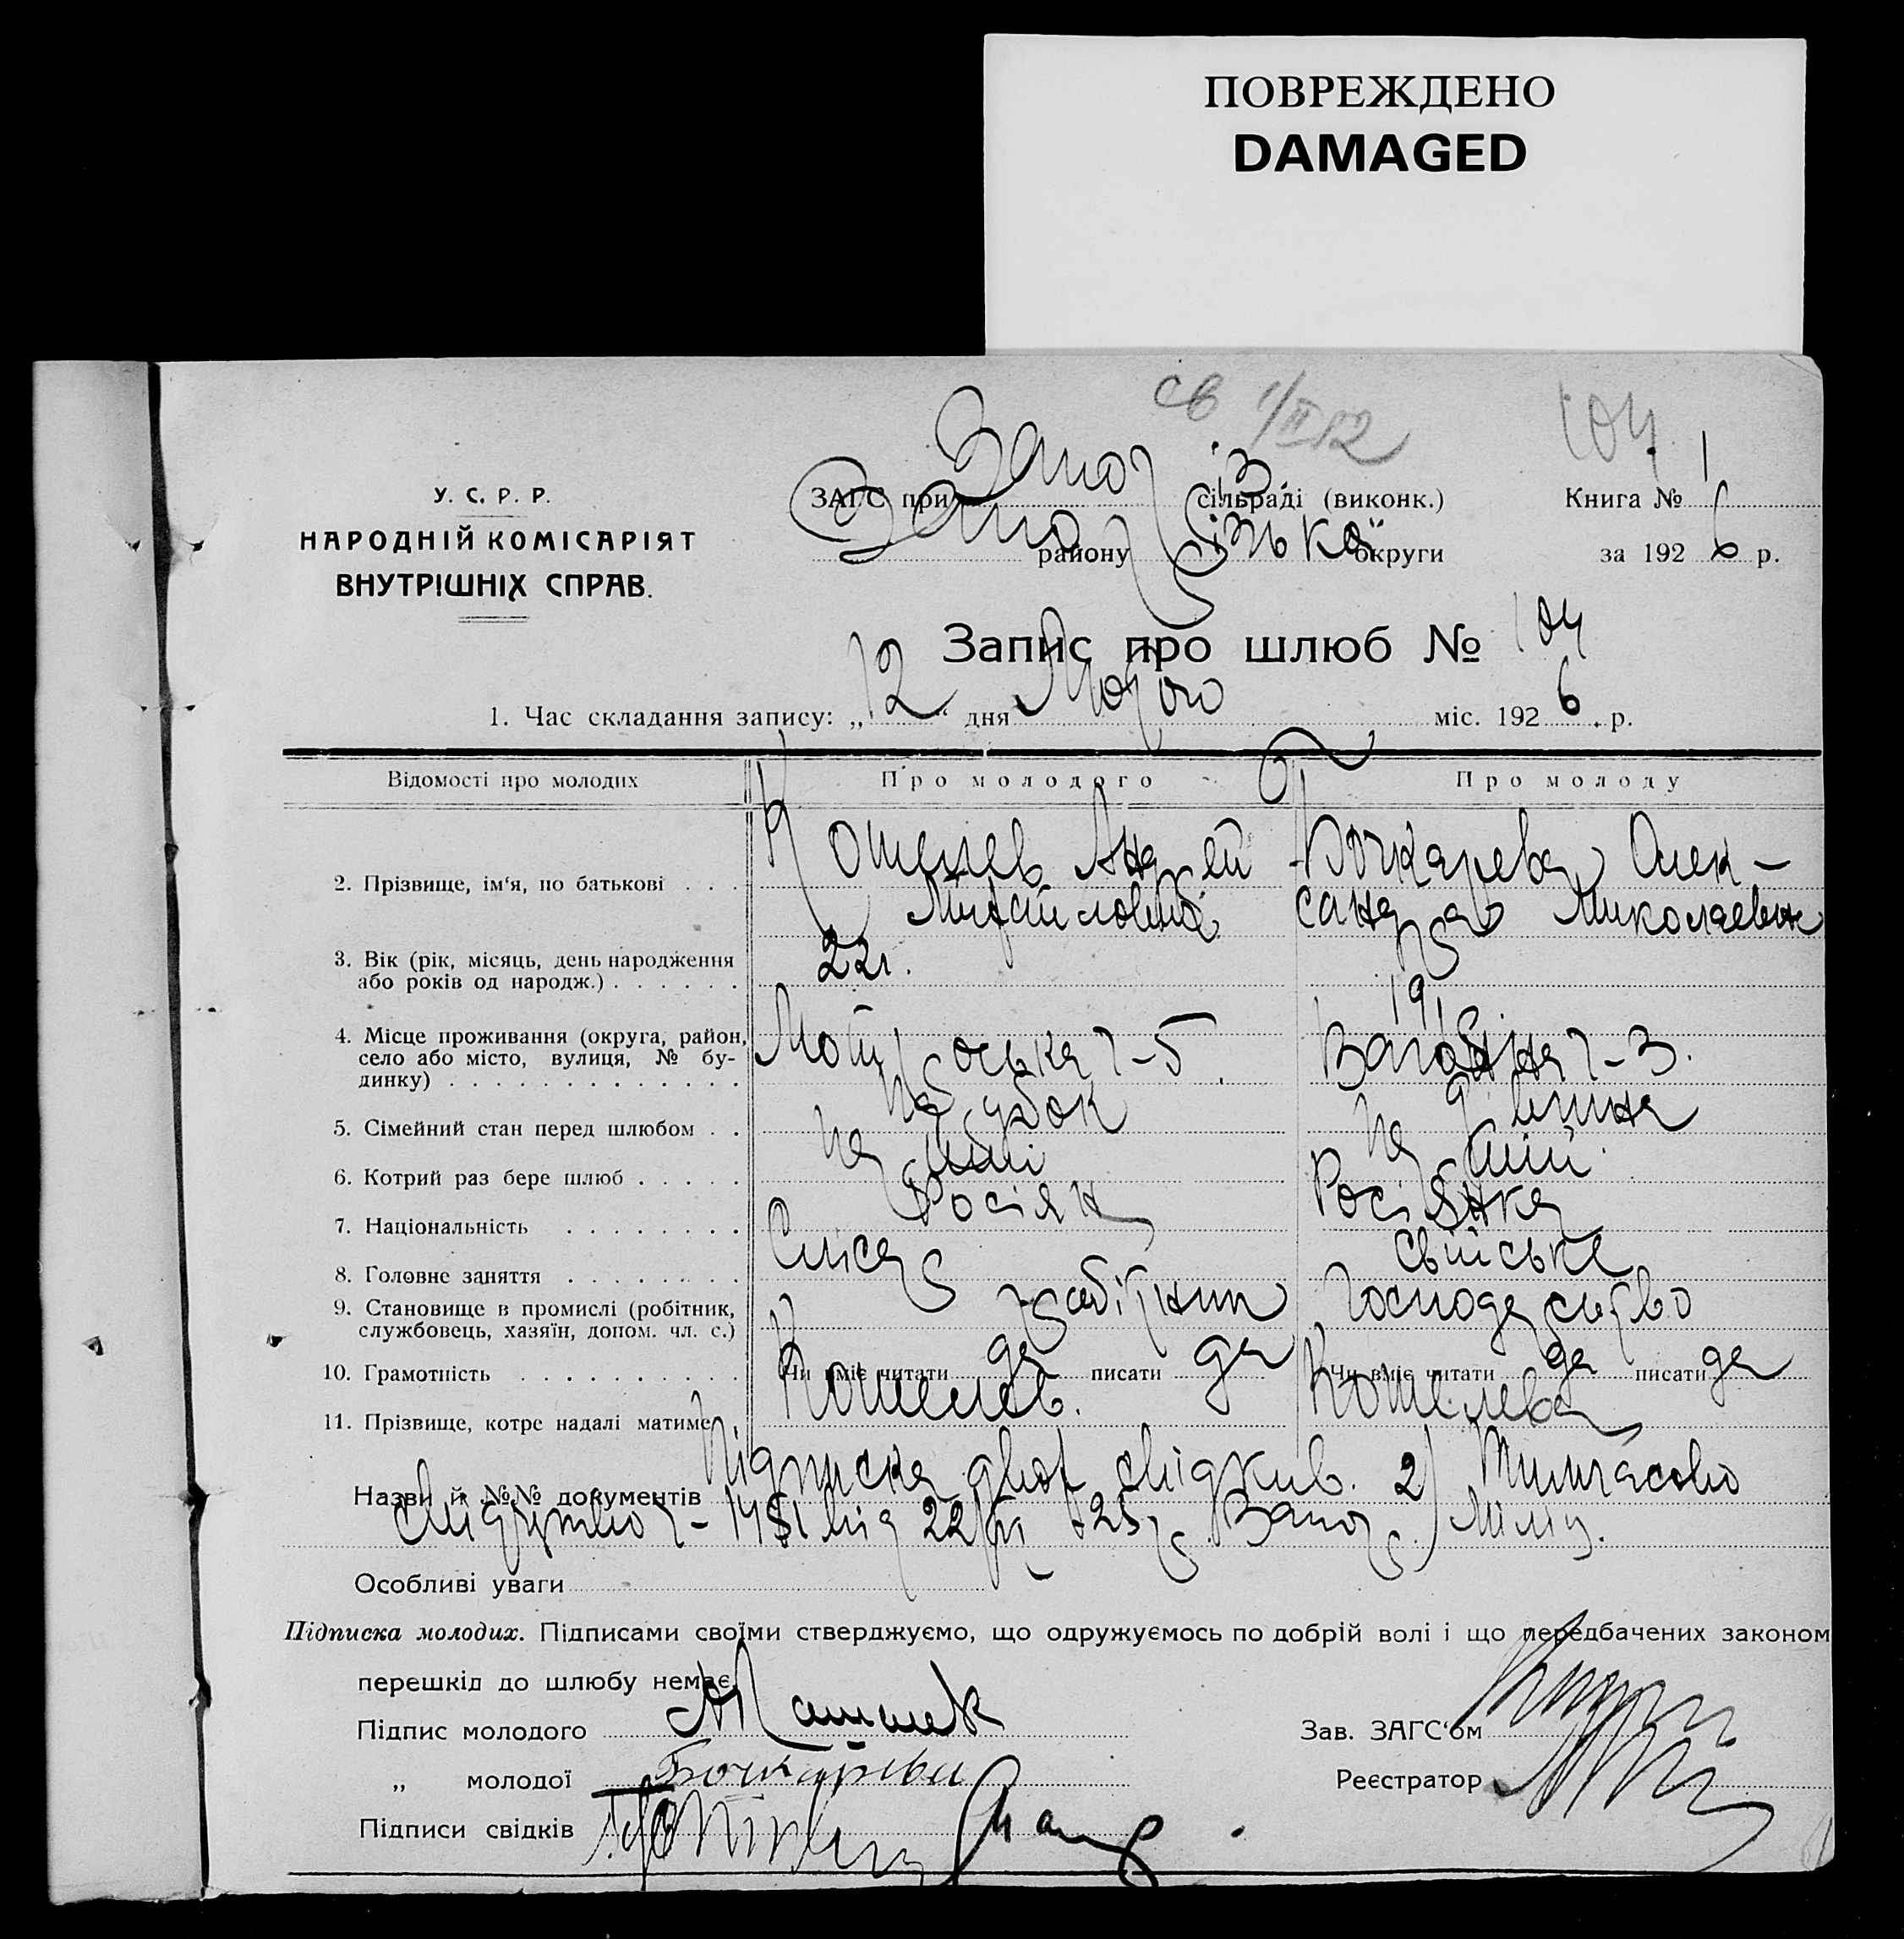 ПОВРЕЖДЕНО
DAMAGED
св 1/II 82
104
У. С. Р. Р.
НАРОДНІЙ КОМІСАРІЯТ
ВНУТРІШНІХ СПРАВ.
ЗАГС при сільраді (виконк.) Книга № 1
району округи за 1926 р.
Запис про шлюб № 104
1. Час складання запису: „12“ дня міс. 1926 р.
Відомості про молодих Про молодого Про молоду
2. Прізвище, ім‘я, по батькові . . . Кошелев Андрей Бочкарева Олек-
Михайлович сандра Николаевн
3. Вік (рік, місяць, день народження 22 г.
або років од народж.) . . . . . . 19
4. Місце проживання (округа, район,
село або місто, вулиця, № бу- 5 3.
динку) . . . . . . . . . . . . .
5. Сімейний стан перед шлюбом . . парубок дівчина
6. Котрий раз бере шлюб . . . . .
7. Національність . . . . . . . . Росіян Росіянка
8. Головне заняття . . . . . . . . Слюсар свійське
9. Становище в промислі (робітник, робітник господарство
службовець, хазяїн, допом. чл. с.)
10. Грамотність . . . . . . . . . . Чи вміє читати да писати да Чи вміє читати да писати да
11. Прізвище, котре надалі матиме Кошелев. Кошелева
Назви й №№ документів Підписка двох свідків. 2) Тимчасово
від Запор. Міліц.
Особливі уваги
Підписка молодих. Підписами своїми стверджуємо, що одружуємось по добрій волі і що передбачених законом
перешкід до шлюбу немає
Підпис молодого
„ молодої Бочкарева
Підписи свідків
Зав. ЗАГС‘ом
Реєстратор